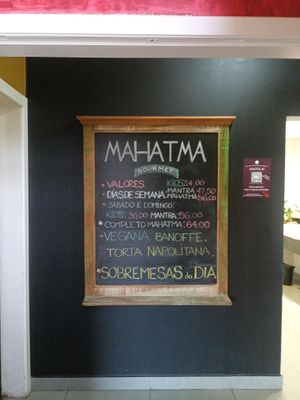 MAHATMA
GOURMET
• VALORES KIDS 24,00
• DIAS DE SEMANA: MANTRA 47,50
MAHATMA 56,00
• SABADO E DOMINGO:
KIDS: 30,00 MANTRA: 56,00
* COMPLETO MAHATMA: 64,00
- VEGANA BANOFFE.
TORTA NAPOLITANA,
* SOBREMESAS do DIA